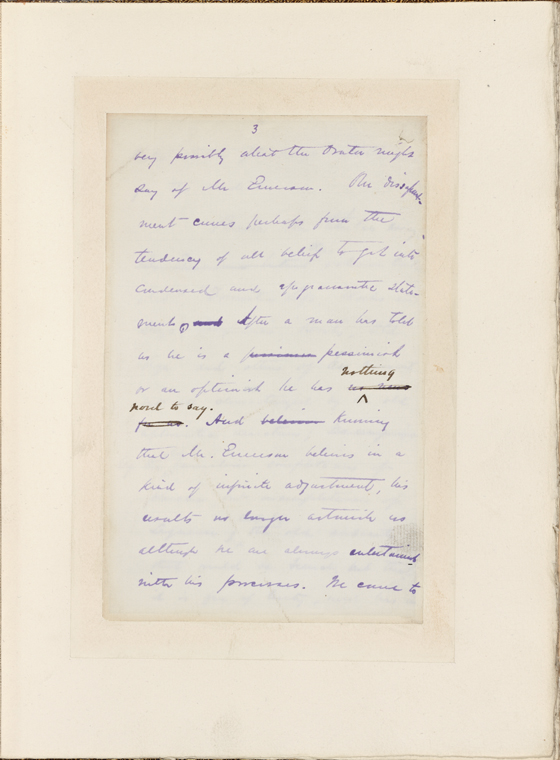 3
very possibly what the Orator might
say of Mr Emerson. The disappoint-
ment comes perhaps from the
tendency of all belief to get into
condensed and epigrammatic state-
ments, and After a man has told
us he is a pessimist
or an optimist he has nothing
more to say. And believes Knowing
that Mr. Emerson believes in a
kind of infinite adjustment, his
results no longer astonish us
although we are always entertained
with his processes. We come to